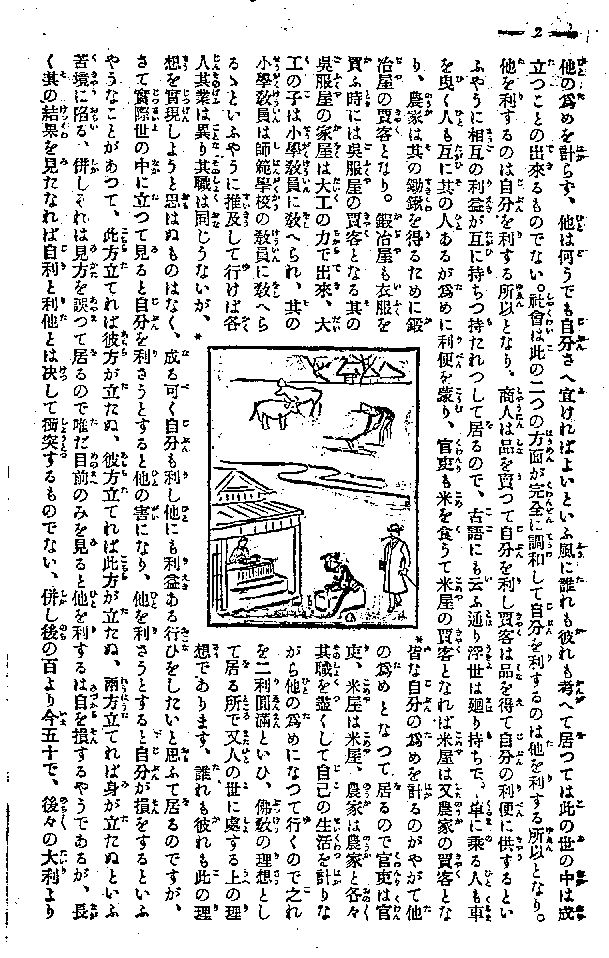 — 2 —
他の爲めを計らず、他は何うでも自分さへ宜ければよいといふ風に誰れも彼れも考へて居つては此の世の中は成
立つことの出來るものでない。社會は此の二つの方面が完全に調和して自分を利するのは他を利する所以となり。
他を利するのは自分を利する所以となり、商人は品を賣つて自分を利し買客は品を得て自分の利便に供するとい
ふやうに相互の利益が互に持ちつ持たれつして居るので、古語にも云ふ通り浮世は廻り持ちで。車に乘る人も車
を曳く人も互に其の人あるが爲めに利便を蒙り、官吏も米を食うて米屋の買客となれば米屋は又農家の買客とな
り、農家は其の鋤鍬を得るために鍛
冶屋の買客となり。鍛冶屋も衣服を
買ふ時には吳服屋の買客となる其の
吳服屋の家屋は大工の力で出來、大
工の子は小學敎員に敎へられ、其の
小學敎員は師範學校の敎員に敎へら
るゝといふやうに推及して行けば各
人其業は異り其職は同じうないが、*
*皆な自分の爲めを計るのがやがて他
の爲めとなつて居るので官吏は官
吏、米屋は米屋、農家は農家と各々
其職を盡くして自己の生活を計りな
がら他の爲めになつて行くので之れ
を二利圓滿といひ、佛敎の理想とし
て居る所で又人の世に處する上の理
想であります。誰れも彼れも此の理
想を實現しようと思はぬものはなく、成る可く自分も利し他にも利益ある行ひをしたいと思ふて居るのですが、
さて實際世の中に立つて見ると自分を利さうとすると他の害になり、他を利さうとすると自分が損をするといふ
やうなことがあつて、此方立てれば彼方が立たぬ、彼方立てれば此方が立たぬ、兩方立てれば身が立たぬといふ
苦境に陷る、併しそれは見方を誤つて居るので唯だ目前のみを見ると他を利するは自を損するやうであるが、長
く其の結果を見たなれば自利と利他とは決して衝突するものでない、併し後の百より今五十で、後々の大利より